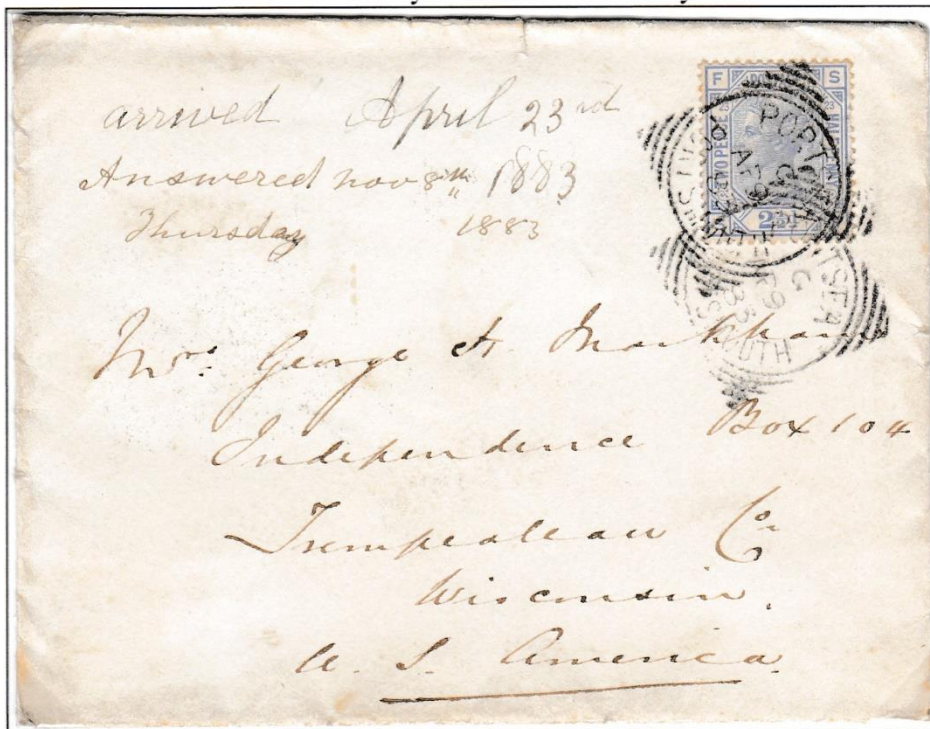 arrived April 23rd
Answered nov 8th 1883
Thursday 1883
F S
TWO PENCE
2½d
PORTSMOUTH
AP 9
G
83
Mrs. George H. Markham
Independence Box 104
Trempealeau Co.
Wisconsin.
U. S. America